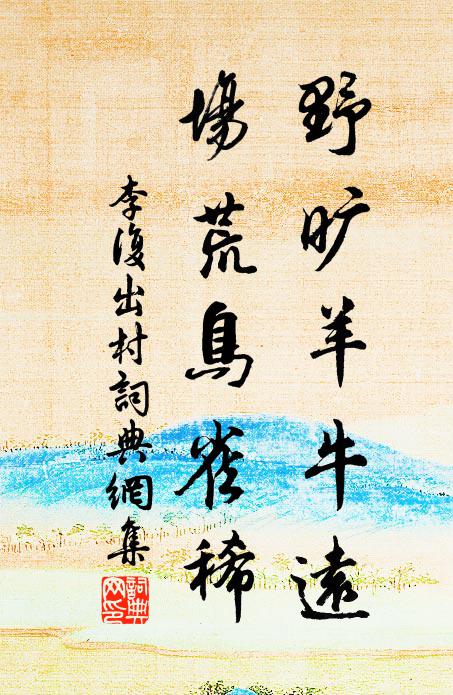 野旷羊牛遠
場荒鳥雀稀
李復出村詞典網集
詞典